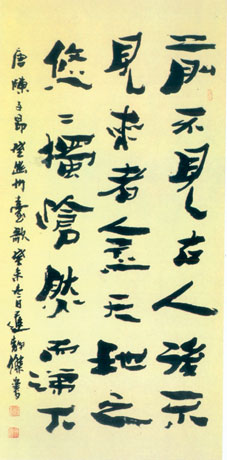 前不見古人後不
見來者念天地之
悠〻獨愴然而涕下
唐陳子昂登幽州臺歌癸未